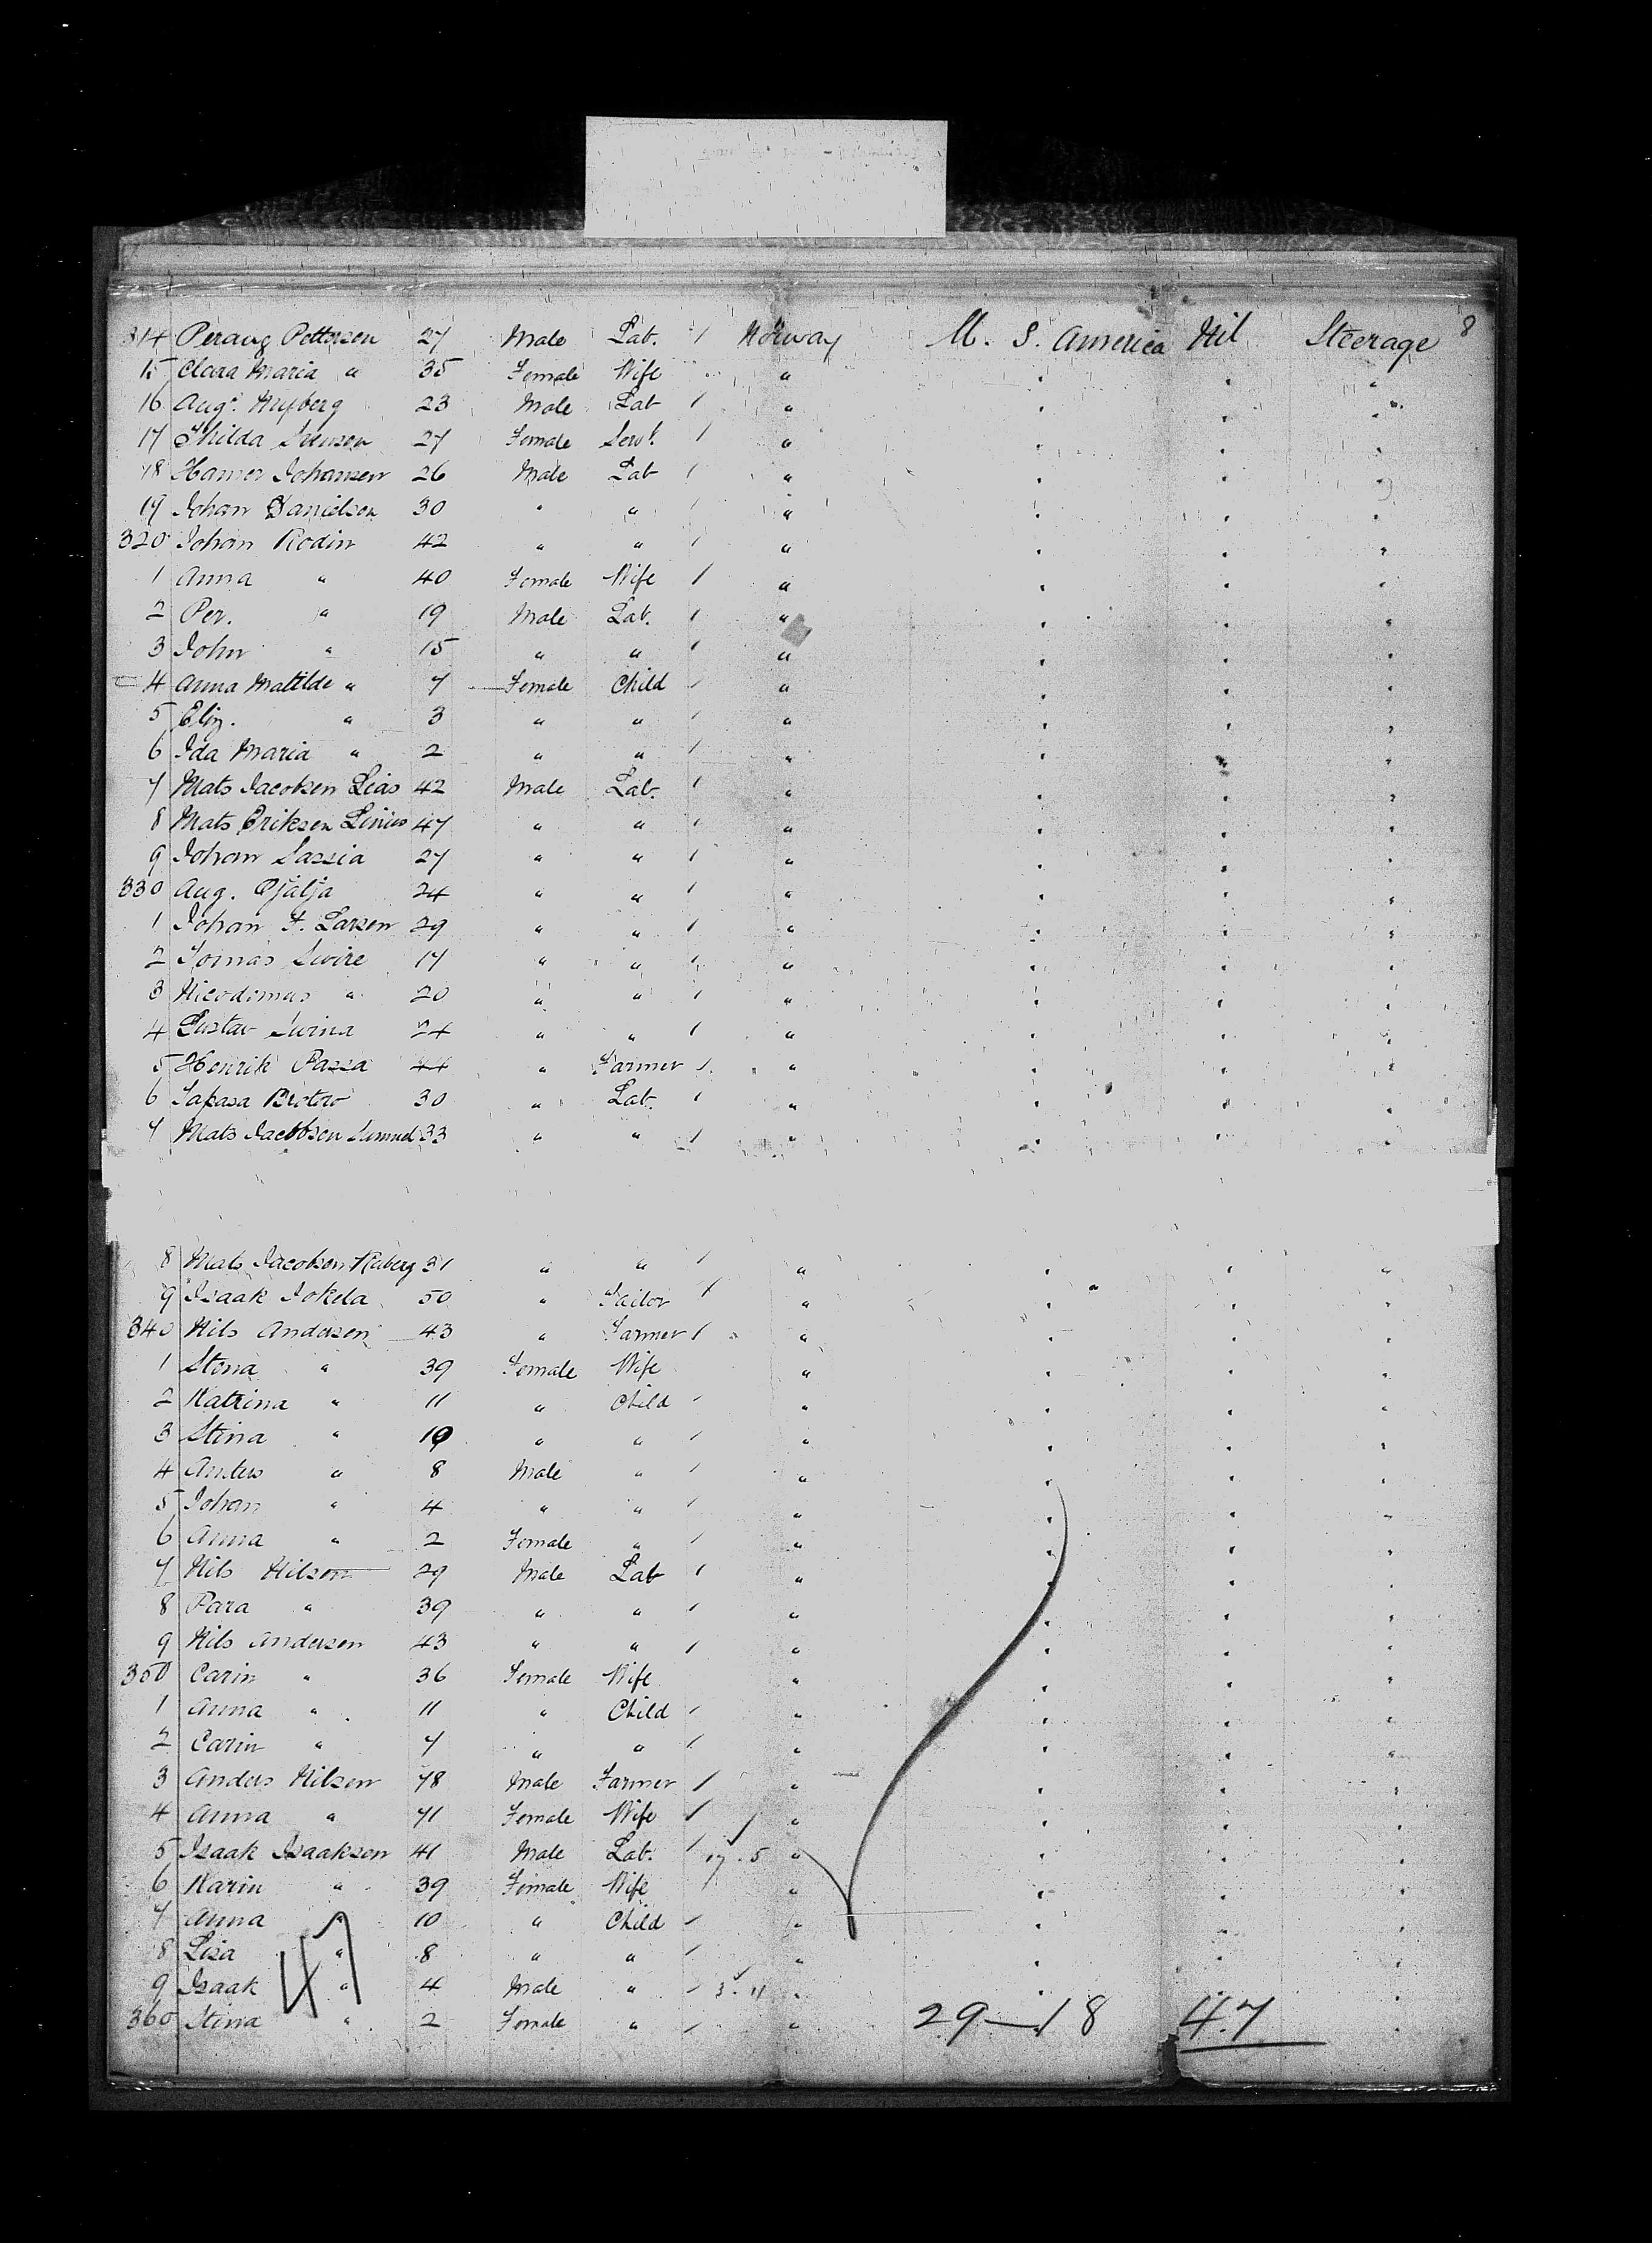 8
314 Peraug Pettersen 27 Male Lab. / Norway U. S. America Nil Steerage
15 Clara Maria " 35 Female Wife " " " "
16 Augt. Nyberg 23 Male Lab / " " " "
17 Thilda Svensen 27 Female Servt. / " " " "
18 Hanner Johansen 26 Male Lab / " " " "
19 Johan Danielsen 30 " " / " " " "
320 Johan Rodin 42 " " / " " " "
1 Anna " 40 Female Wife / " " " "
2 Per. " 19 Male Lab. / " " " "
3 John " 15 " " / " " " "
4 Anna Matilde " 7 Female Child / " " " "
5 Eliz. " 3 " " / " " " "
6 Ida Maria " 2 " " / " " " "
7 Mats Jacobsen Lias 42 Male Lab. / " " " "
8 Mats Eriksen Linies 47 " " / " " " "
9 Johan Sassia 27 " " / " " " "
330 Aug. Pjalja 24 " " / " " " "
1 Johan F. Larsen 29 " " / " " " "
2 Tomas Swire 17 " " / " " " "
3 Nicodimus " 20 " " / " " " "
4 Gustav Swina 24 " " / " " " "
5 Henrik Passa 44 " Farmer / " " " "
6 Tapasa Brotow 30 " Lab. / " " " "
7 Mats Jacobsen 33 " " / " " " "
8 Mats Jacobsen Ruberg 31 " " / " " " "
9 Isaak Jokela 50 " Tailor / " " " "
340 Nils Andersen 43 " Farmer / " " " "
1 Stina " 39 Female Wife " " " "
2 Katrina " 11 " Child / " " " "
3 Stina " 10 " " / " " " "
4 Anders " 8 Male " / " " " "
5 Johan " 4 " " / " " " "
6 Anna " 2 Female " / " " " "
7 Nils Nilsen 29 Male Lab / " " " "
8 Para " 39 " " / " " " "
9 Nils Andersen 43 " " / " " " "
350 Carin " 36 Female Wife " " " "
1 Anna " 11 " Child / " " " "
2 Carin " 7 " " / " " " "
3 Anders Nilsen 78 Male Farmer / " " " "
4 Anna " 71 Female Wife / " " " "
5 Isaak Isaaksen 41 Male Lab. / 17.5 " " " "
6 Karin " 39 Female Wife " " " "
7 Anna " 10 " Child / " " " "
8 Lisa " 8 " " / " " " "
9 Isaak " 4 Male " / 3.11 " " " "
360 Stina " 2 Female " / " "
47
29—18 47